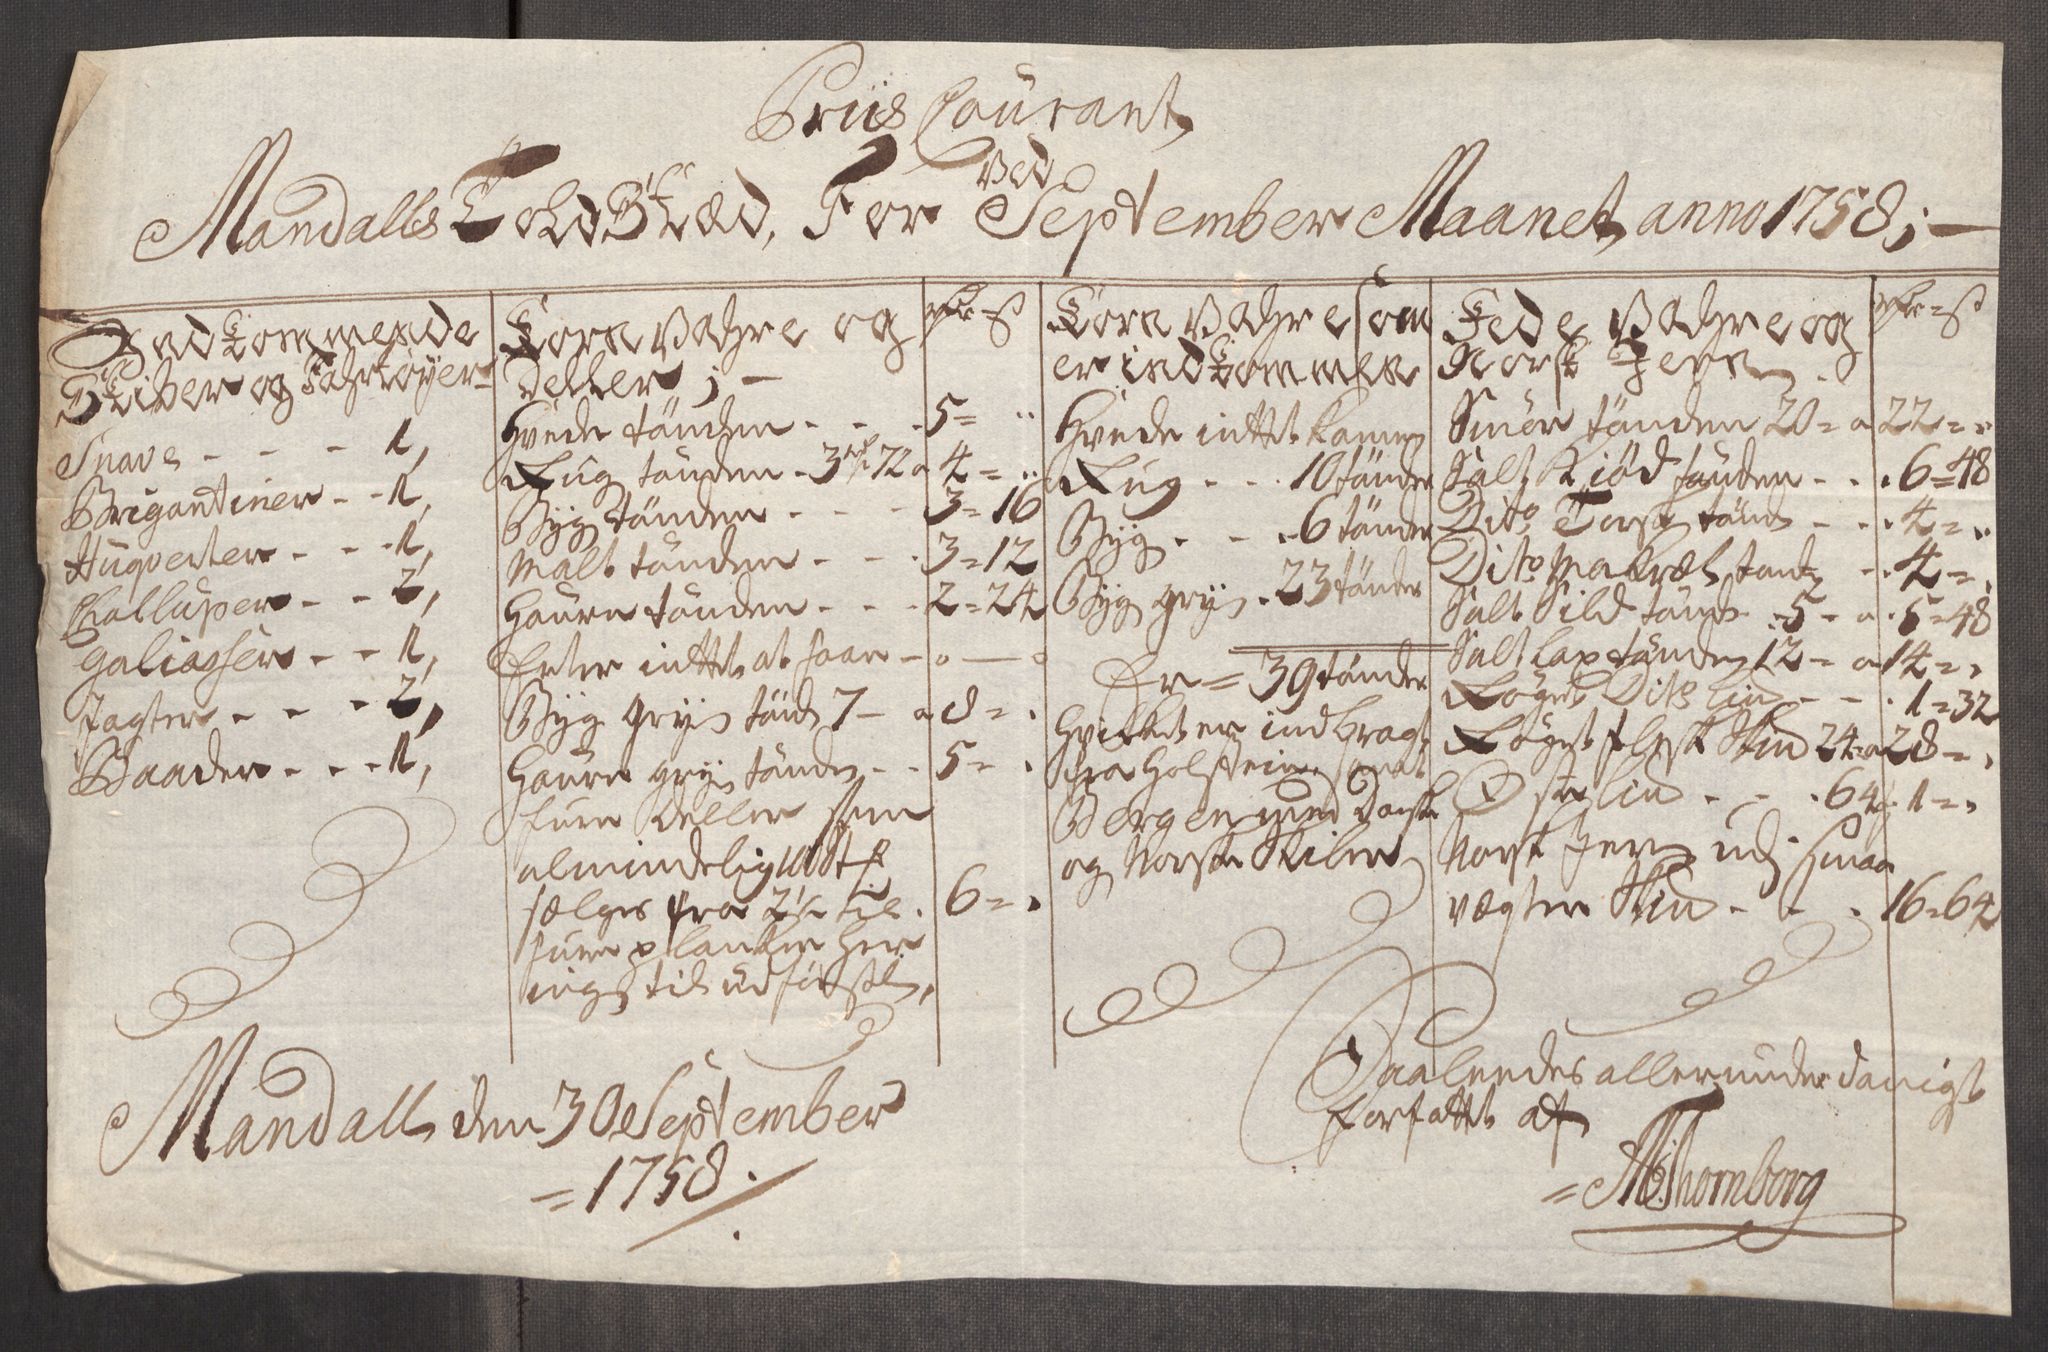 Priis Courant
ved
Mandalls Told Stæd, For September Maanet anno 1758;
Indkommende
Skiber og Fahrtøyer
Snave - - - 1,
Brigantiner - - 1,
Huqverter - - - 1,
Challuper - - 2,
Galiasser - - 1,
Jagter - - - 2,
Baader - - - 1,
Korn Vahre og
Deller; -
Hvede tönden - - - 5 = "
Rug tönden - 3 rd 72 a 4 = "
Byg tönden - - - 3 = 16
Malt tönden - - - 3 = 12
Haure tönden - - - 2 = 24
Erter inttet at faar - o - o
Byg gryn tönd 7 - a 8 = "
Haure gryn tönden - - 5 = "
Fure Deller som
almindelig 10 st
sælges fra 2 1/2 til 6 = "
fure planker her
ings til udførsel,
rd = s
Korn Vahre som
er indkommen
Hvede inttet kommen
Rug - - - 10 tönder
Byg - - - 6 tönder
Byg gryn - 23 tönder
Er = 39 tönder
hvilket er indbragt
fra Holsteen samt
Bergen med Danske
og Norske Skiber
Fede Vahre og
Norsk Jern
rd = s
Smör tönden 20 = a 22 = "
Salt Kiöd tönden - - 6 = 48
Dito Torsk tönd - - 4 = "
Dito Makrel tönd - - 4 = "
Salt Sild tönd 5 - a 5 = 48
Salt Lax tönden 12 - a 14 = "
Röget Dito Lis - - 1 = 32
Röget Flesk Skid 24 = a 28 = "
Oste Lis - - 64 s 1 = "
Norsk Jern udj smaa
vægter Skid - - - 16 = 64
Mandall den 30 September
= 1758.
Saaleedes allerunderdanigst
forfattet af
= Thornborg